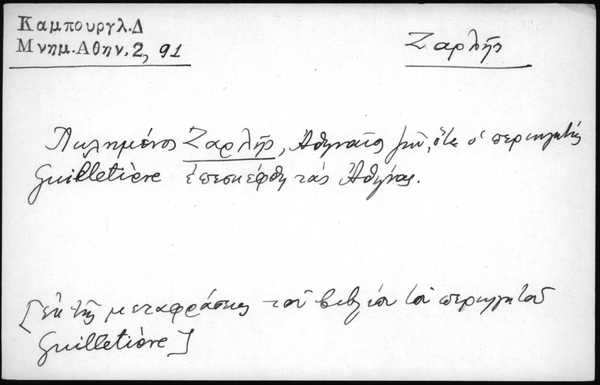 Καμπουργλ.Δ
Μνημ.Αθην.2, 91
Ζαρλῆς
Ζαρλῆς, Ἀθηναῖος ὅτε ὁ περιηγητής
Guilletière ἐπεσκέφθη τάς Ἀθήνας.
[ἐκ τῆς μεταφράσεως τοῦ βιβλίου τοῦ περιηγητοῦ
Guilletière]